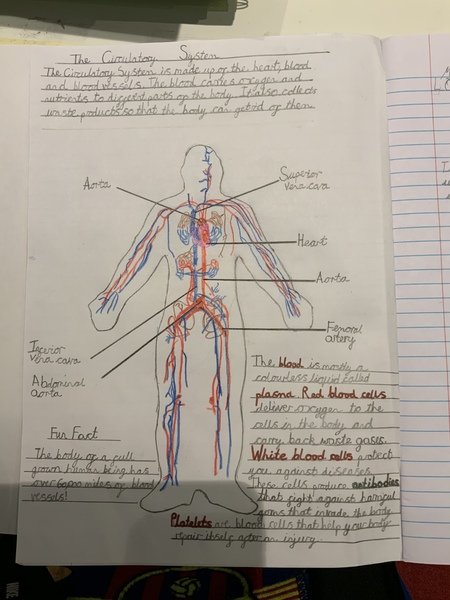 The Circulatory System
The Circulatory System is made up of the heart, blood
and blood vessels. The blood carries oxygen and
nutrients to different parts of the body. It also collects
waste products so that the body can get rid of them.
Aorta
Superior
Vena cava
Heart
Aorta
Femoral
artery
Inferior
Vena cava
Abdominal
aorta
Fun Fact
The body of a full
grown human being has
over 60,000 miles of blood
vessels!
The blood is mostly a
colourless liquid called
plasma. Red blood cells
deliver oxygen to the
cells in the body and
carry back waste gases.
White blood cells protect
you against diseases.
These cells produce antibodies
that fight against harmful
germs that invade the body.
Platelets are blood cells that help your body
repair itself after an injury.